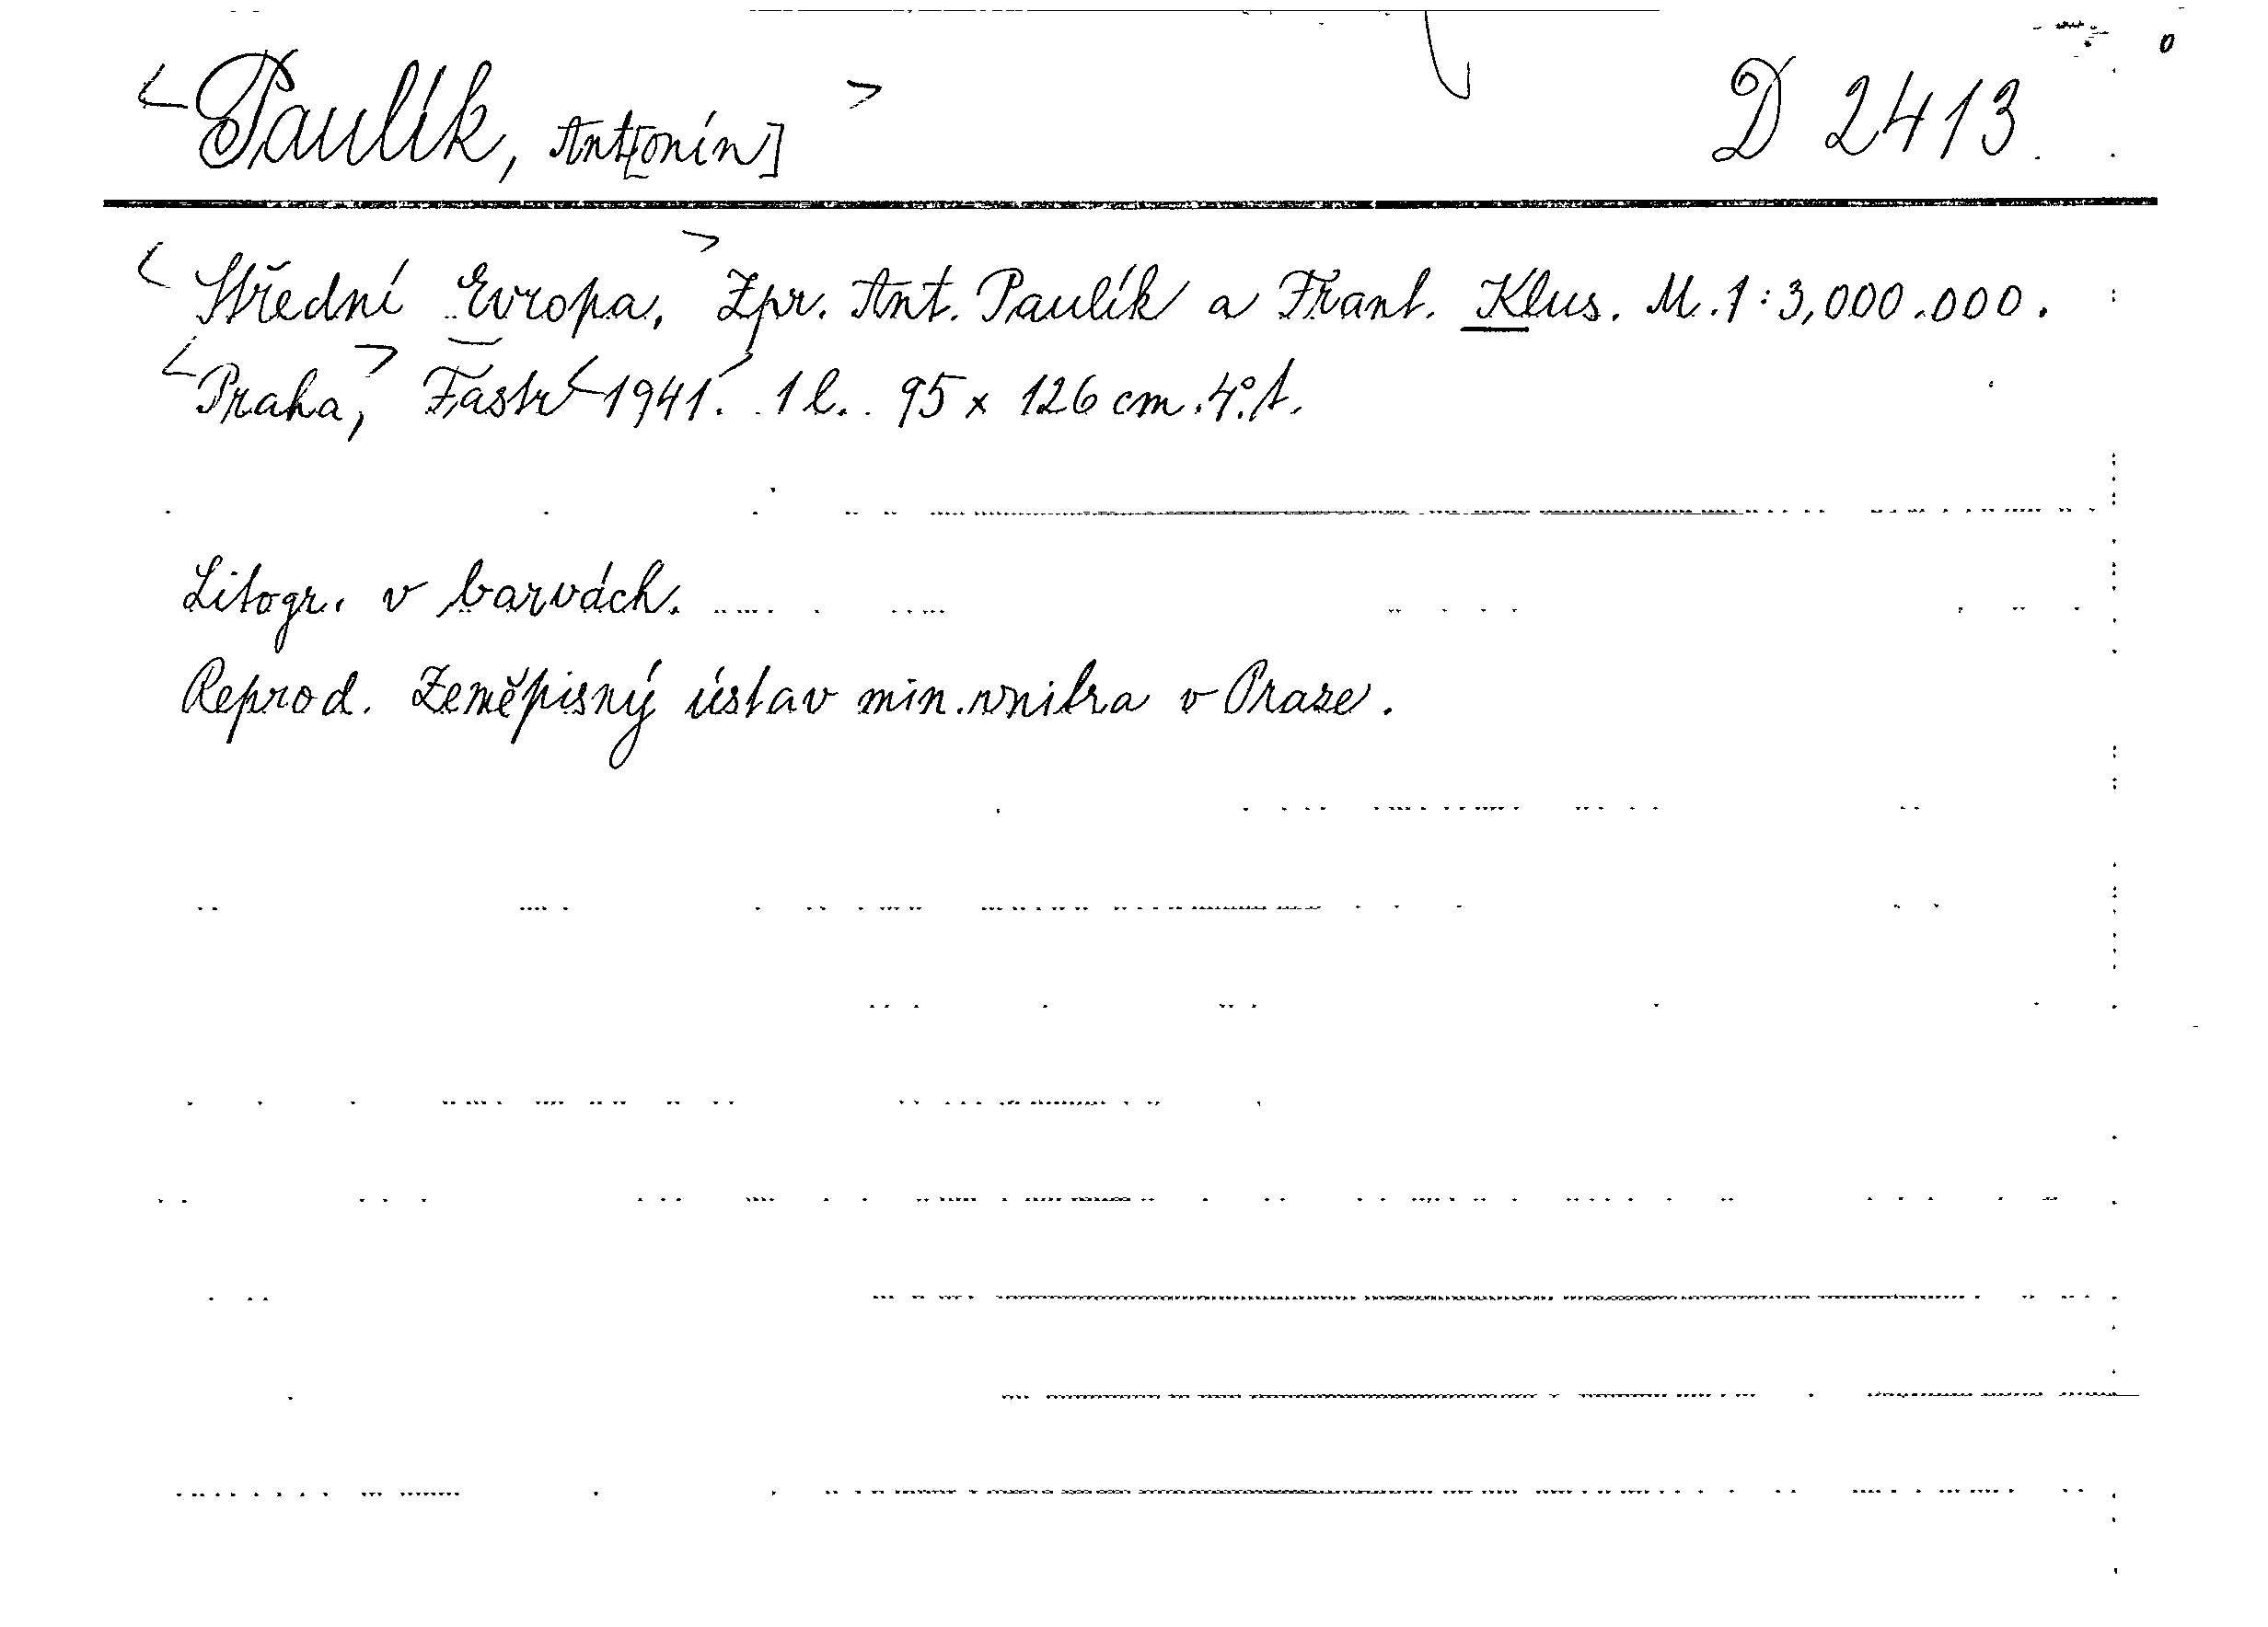 <Paulík, Ant[onín]> D 2413
<Střední Evropa,> Zpr. Ant. Paulík a Frant. Klus. M. 1:3,000.000.
<Praha,> Fastr <1941.> 1 l. 95 x 126 cm. 4°. t.
Litogr. v barvách.
Reprod. Zeměpisný ústav min. vnitra v Praze.